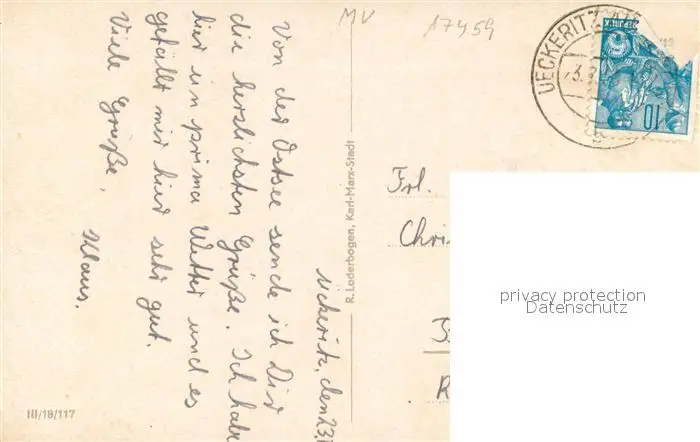 MV 17459
UECKERITZ
REPUBLIK
10
Ückeritz, den 23.
Von der Ostsee sende ich Dir
die herzlichsten Grüße. Ich habe
hier ein prima Wetter und es
gefällt mir hier sehr gut.
Viele Grüße,
Klaus.
R. Loderbogen, Karl-Marx-Stadt
Frl.
Chri
III/18/117
privacy protection
Datenschutz